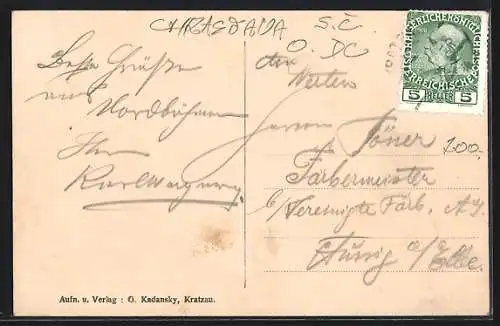 CHRASTAVA
S.Č.
O. DC
Beste Grüße
aus
Nordböhmen
Ihr
Karl Wagner
den
Werten
Herrn Töner
100.-
Färbermeister
b/Vereinigte Färb. A.G.
Aussig a/Elbe.
KAISERLICHE KÖNIGLICHE ÖSTERREICHISCHE
5 HELLER 5
Aufn. u. Verlag : G. Kadansky, Kratzau.